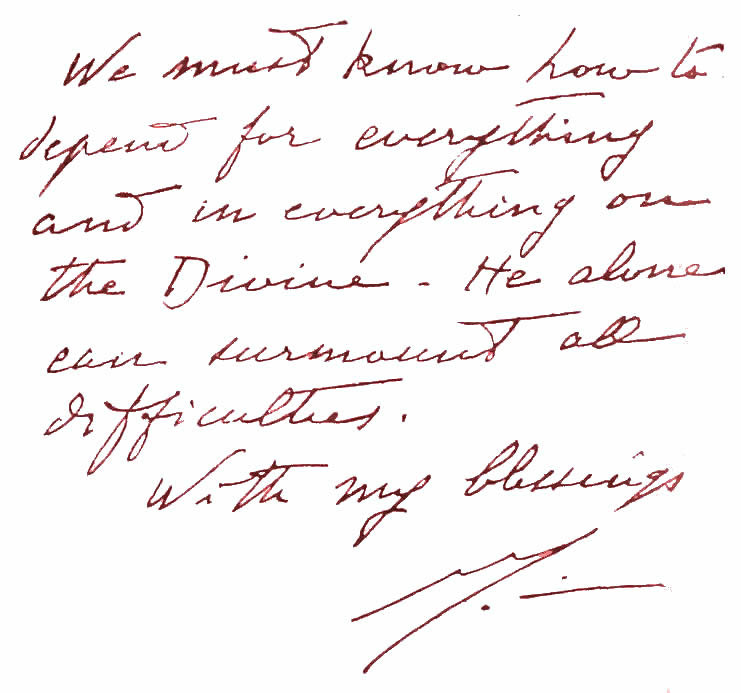 We must know how to
depend for everything
and in everything on
the Divine. He alone
can surmount all
difficulties.
With my blessings